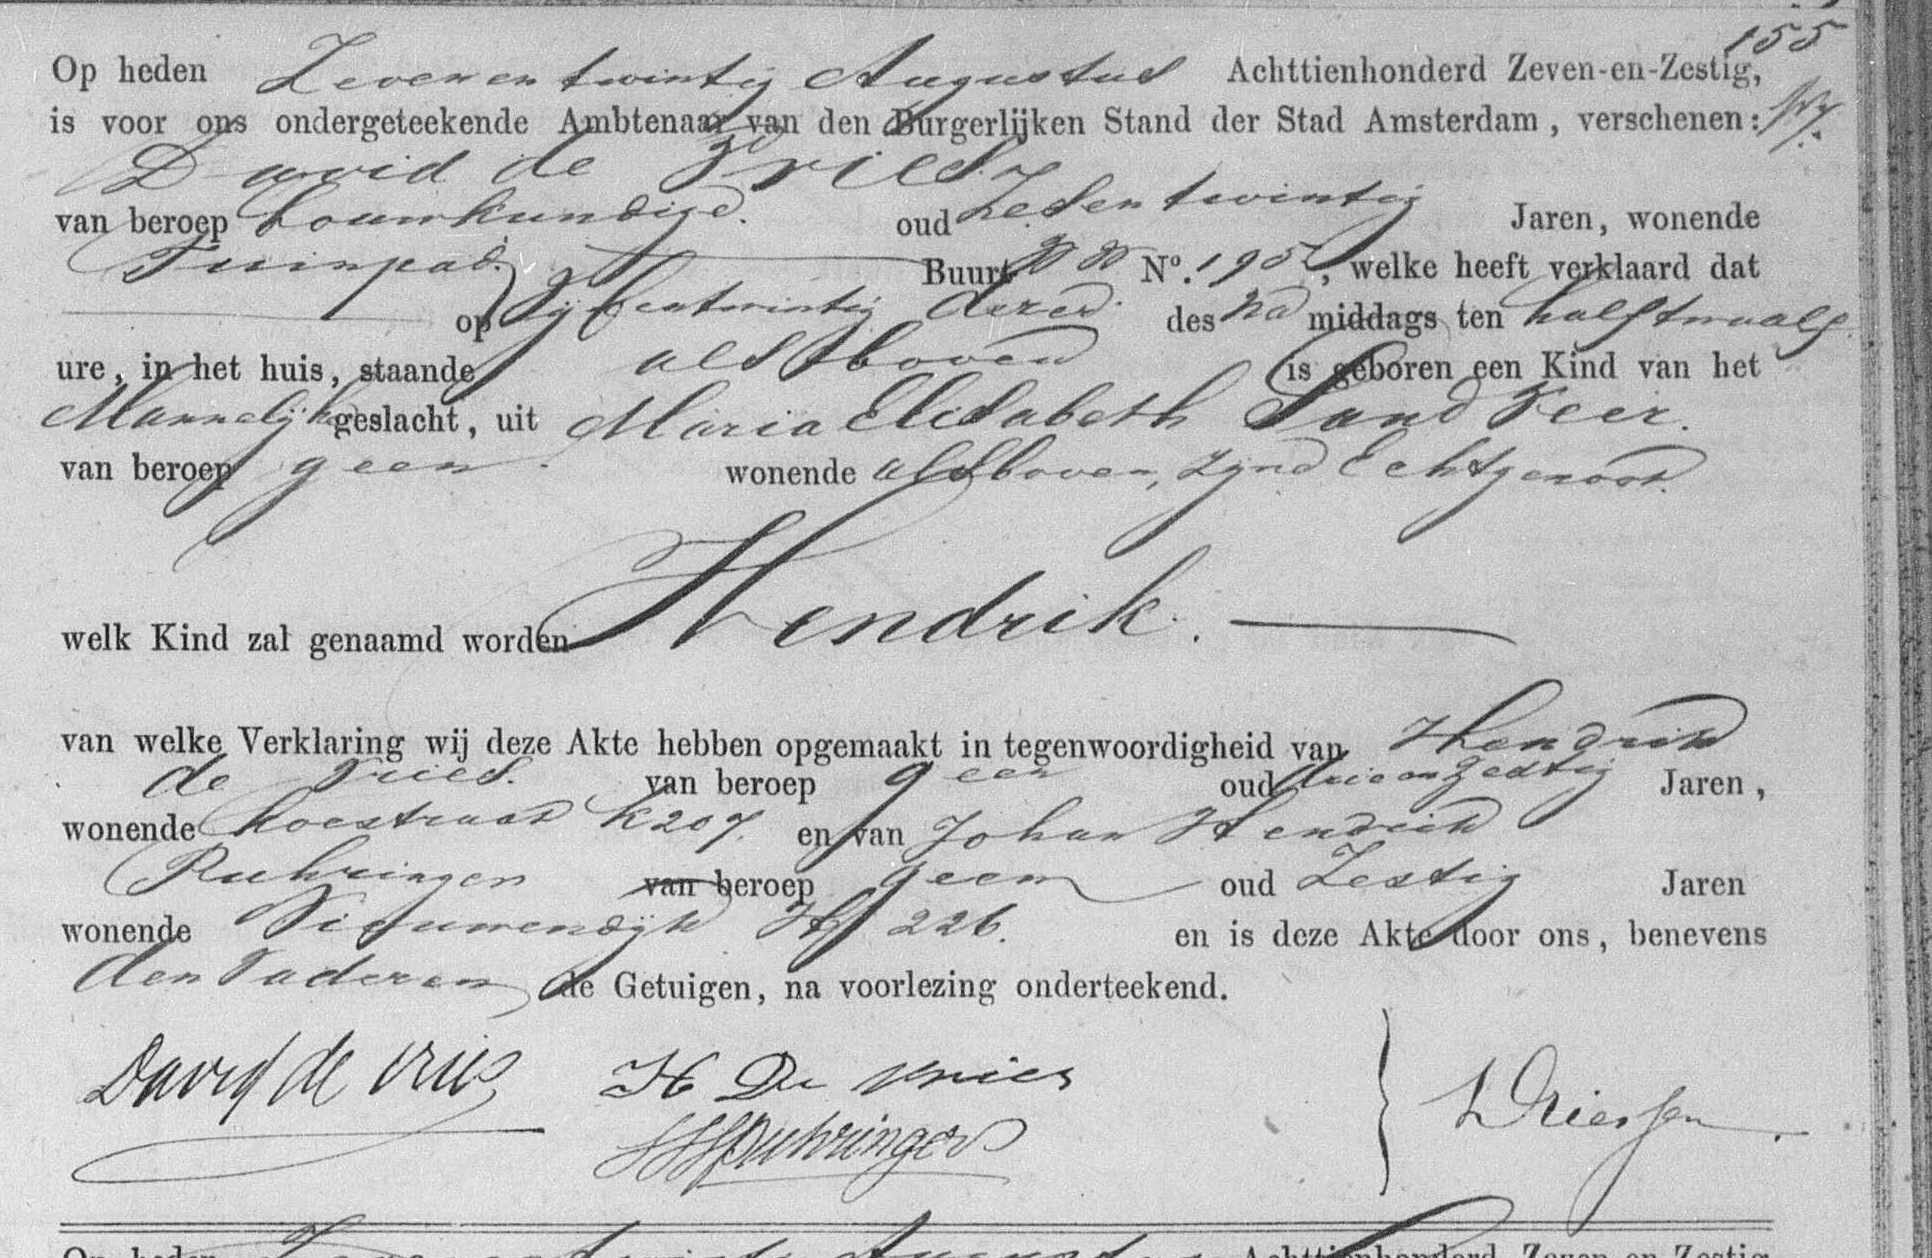 155
Op heden Zevenentwintig Augustus Achttienhonderd Zeven-en-Zestig,
is voor ons ondergeteekende Ambtenaar van den Burgerlijken Stand der Stad Amsterdam, verschenen:
David de Vries
van beroep bouwkundige. oud Zesentwintig Jaren, wonende
Tuinpad. Buurt No. 195, welke heeft verklaard dat
op Vijfentwintig dezer des na middags ten halftwaalf
ure, in het huis, staande als boven is geboren een Kind van het
Mannelijk geslacht, uit Maria Elisabeth Sandveer.
van beroep geen. wonende als boven, zijne Echtgenoot.
welk Kind zal genaamd worden Hendrik.
van welke Verklaring wij deze Akte hebben opgemaakt in tegenwoordigheid van Hendrik
de Vries. van beroep geen oud drieenzestig Jaren,
wonende Koestraat K207. en van Johan Hendrik
Ruhringer van beroep geen oud Zestig Jaren
wonende Nieuwendijk 226. en is deze Akte door ons, benevens
den Vader en de Getuigen, na voorlezing onderteekend.
David de Vries H De Vries
Driessen
Op heden Zevenentwintig Augustus Achttienhonderd Zeven-en-Zestig